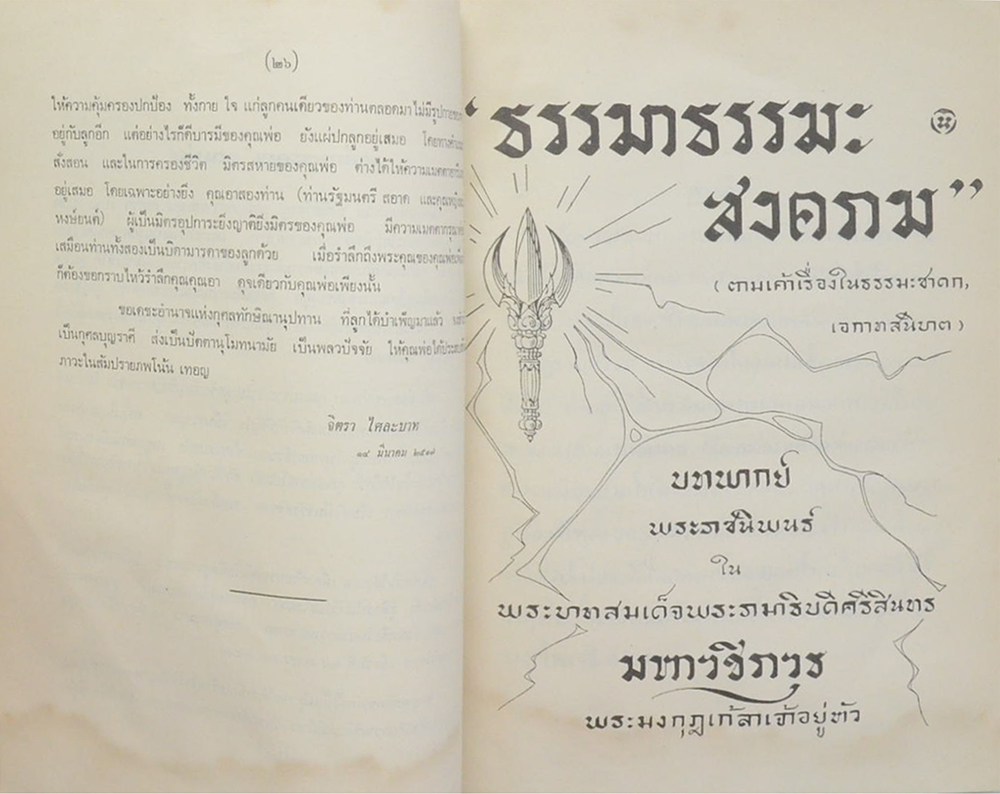 (๒๖)
ให้ความคุ้มครองปกป้อง ทั้งกาย ใจ แก่ลูกคนเดียวของท่านตลอดมาไม่มีรูปกาย
อยู่กับลูกอีก แต่อย่างไรก็ดีบารมีของคุณพ่อ ยังแผ่ปกลูกอยู่เสมอ โดยทาง
สั่งสอน และในการครองชีวิต มิตรสหายของคุณพ่อ ต่างได้ให้ความเมตตา
อยู่เสมอ โดยเฉพาะอย่างยิ่ง คุณอาสองท่าน (ท่านรัฐมนตรี สอาด และคุณหญิง
หงษ์ยนต์) ผู้เป็นมิตรอุปการะยิ่งญาติยิ่งมิตรของคุณพ่อ มีความเมตตากรุณา
เสมือนท่านทั้งสองเป็นบิดามารดาของลูกด้วย เมื่อรำลึกถึงพระคุณของคุณพ่อ
ก็ต้องขอกราบไหว้รำลึกคุณคุณอา ดุจเดียวกับคุณพ่อเพียงนั้น
ขอเดชะอำนาจแห่งกุศลทักษิณานุปทาน ที่ลูกได้บำเพ็ญมาแล้ว
เป็นกุศลบุญราศี ส่งเป็นปัตตานุโมทนามัย เป็นพลวปัจจัย ให้คุณพ่อได้ประสบ
ภาวะในสัมปรายภพโน้น เทอญ
จิตรา ไศละบาท
๑๔ มีนาคม ๒๕๑๗
“ธรรมาธรรมะ
สงคราม”
(ตามเค้าเรื่องในธรรมะชาดก,
เอกาทสนิบาต)
บทพากย์
พระราชนิพนธ์
ใน
พระบาทสมเด็จพระรามาธิบดีศรีสินทร
มหาวชิราวุธ
พระมงกุฎเกล้าเจ้าอยู่หัว